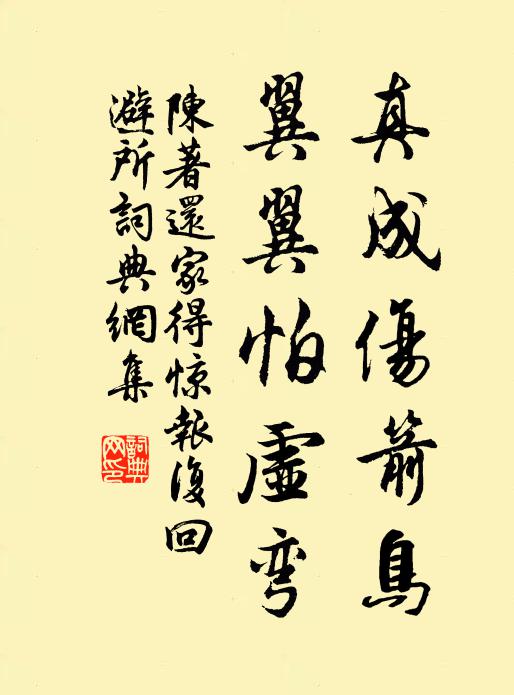 真成傷箭鳥
翼翼怕虛弯
陳著還家得惊報復回
避所詞典網集
詞典
网印